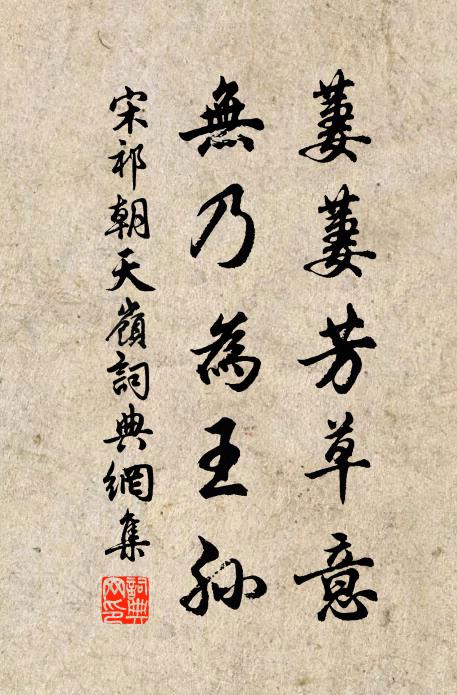 萋萋芳草意
無乃為王孫
宋祁朝天嶺詞典網集
詞典網印